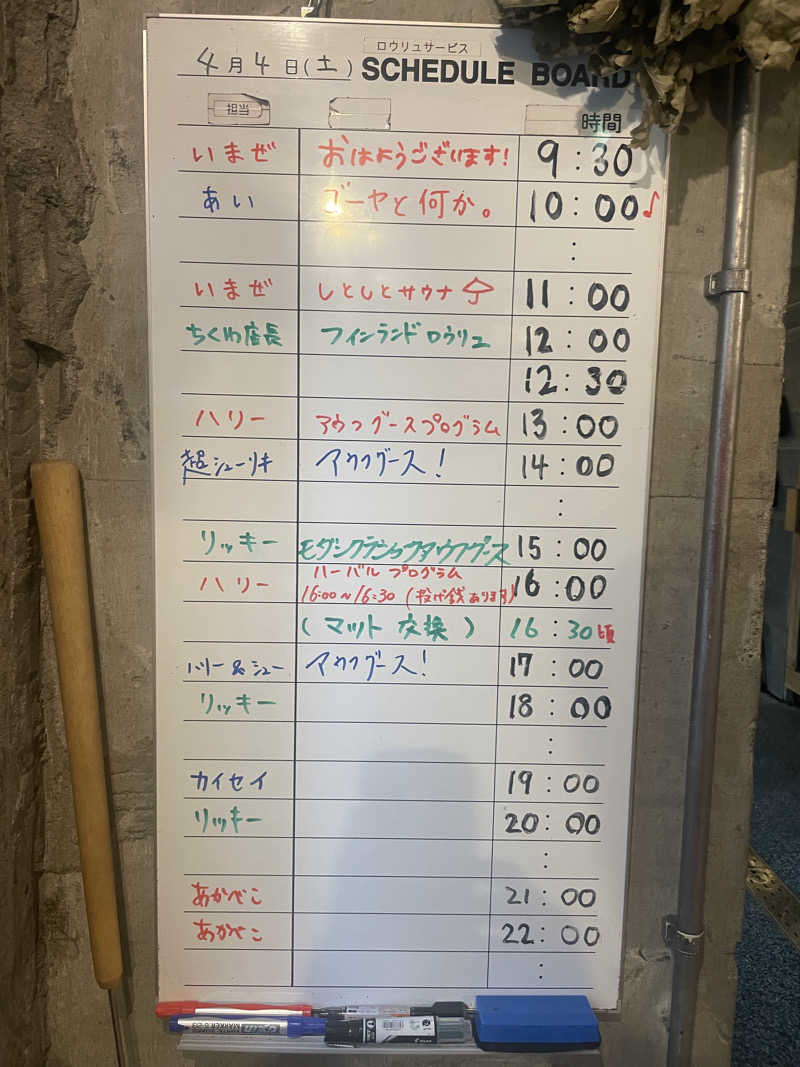 ロウリュサービス
4月4日(土) SCHEDULE BOARD
担当 時間
いまぜ おはようございます! 9:30
あい ゴーヤと何か。 10:00♪
:
いまぜ しとしとサウナ 11:00
ちくわ店長 フィンランドロウリュ 12:00
12:30
ハリー アウフグースプログラム 13:00
超シューリキ アウフグース! 14:00
:
リッキー モダンクラシックアウフグース 15:00
ハリー ハーバルプログラム 16:00
16:00~16:30 (投げ銭あります)
(マット交換) 16:30頃
ハリー&シュー アウフグース! 17:00
リッキー 18:00
:
カイセイ 19:00
リッキー 20:00
:
あかべこ 21:00
あかべこ 22:00
: